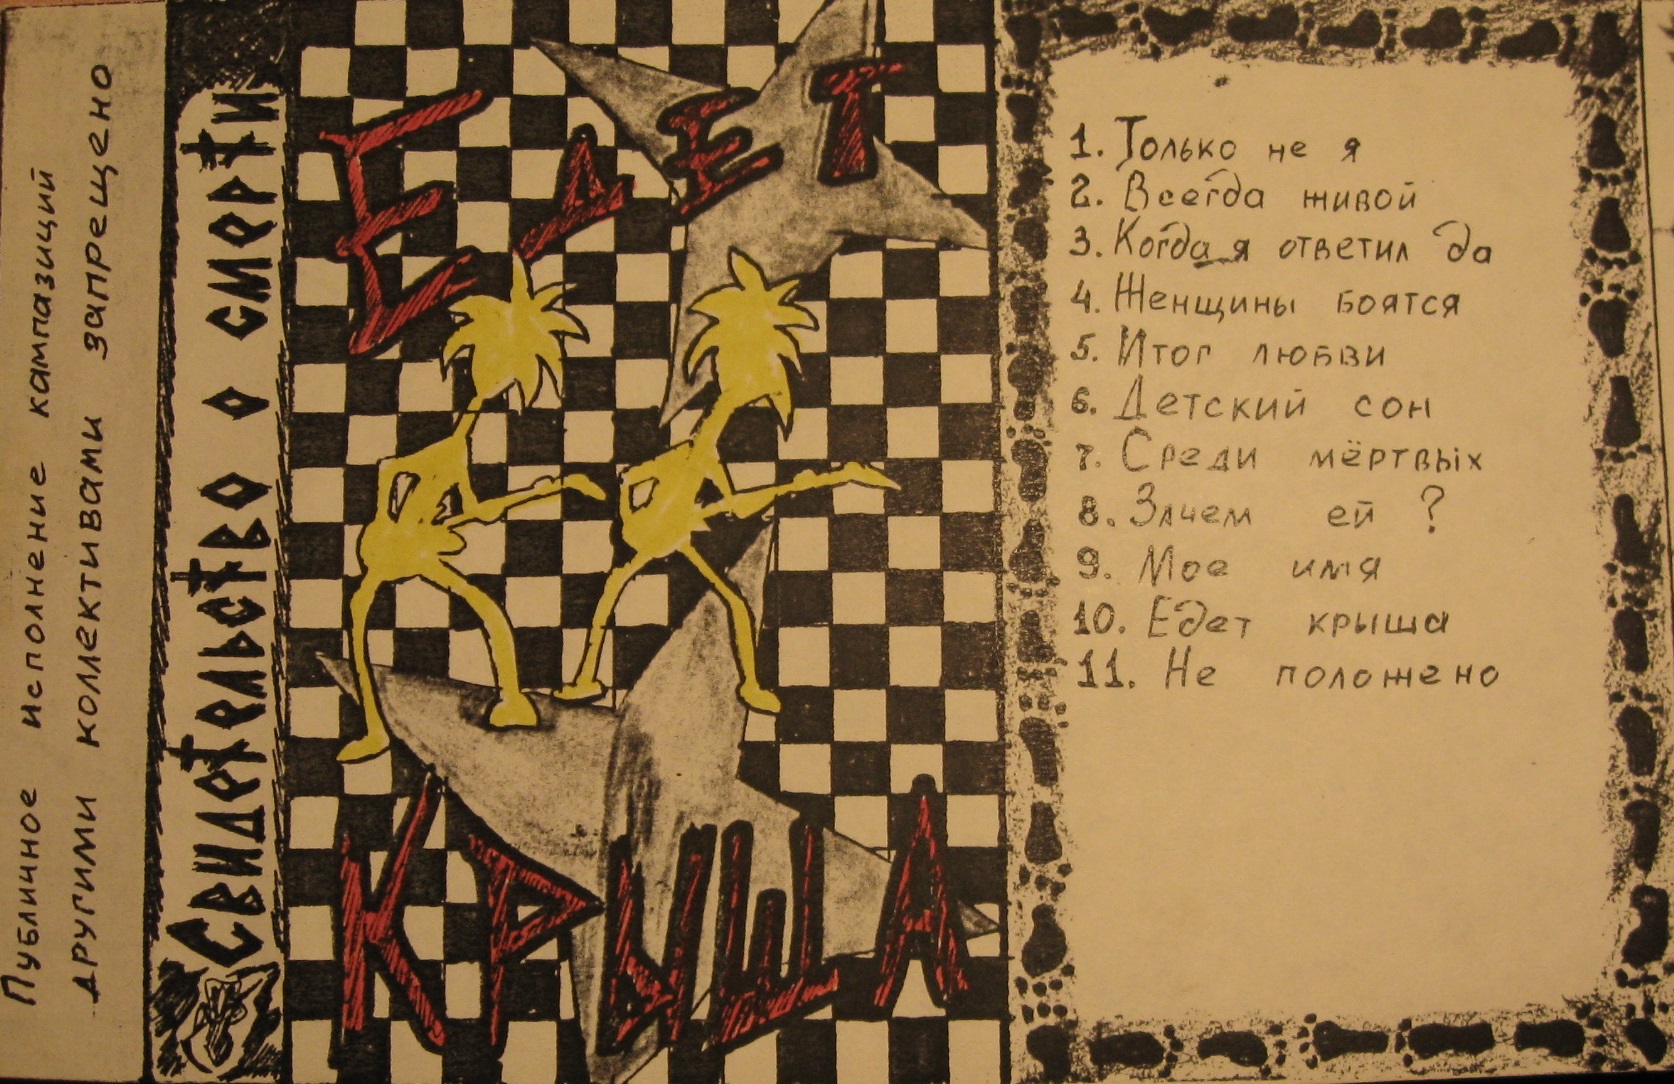 Публичное исполнение кампазиций
другими коллективами запрещено
Свидетельство о смерти
ЕдЕТ
КРЫША
1. Только не я
2. Всегда живой
3. Когда я ответил да
4. Женщины боятся
5. Итог любви
6. Детский сон
7. Среди мёртвых
8. Зачем ей ?
9. Мое имя
10. Едет крыша
11. Не положено